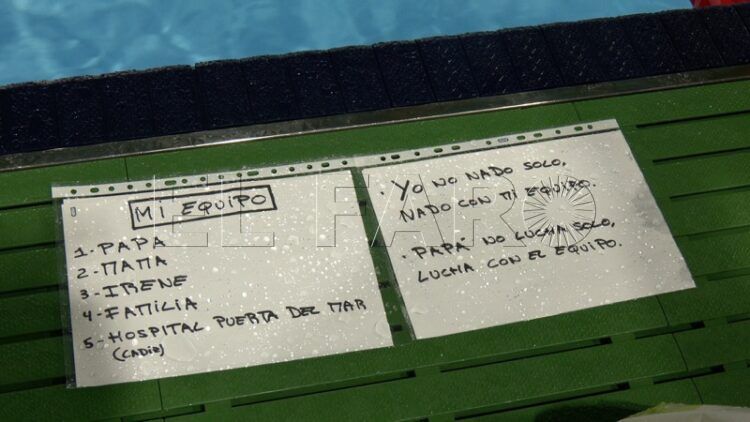 MI EQUIPO
1-PAPA
2-MAMA
3-IRENE
4-FAMILIA
5-HOSPITAL PUERTA DEL MAR
(CADIZ)
· YO NO NADO SOLO,
NADO CON MI EQUIPO.
· PAPÁ NO LUCHA SOLO,
LUCHA CON EL EQUIPO.
EL FARO